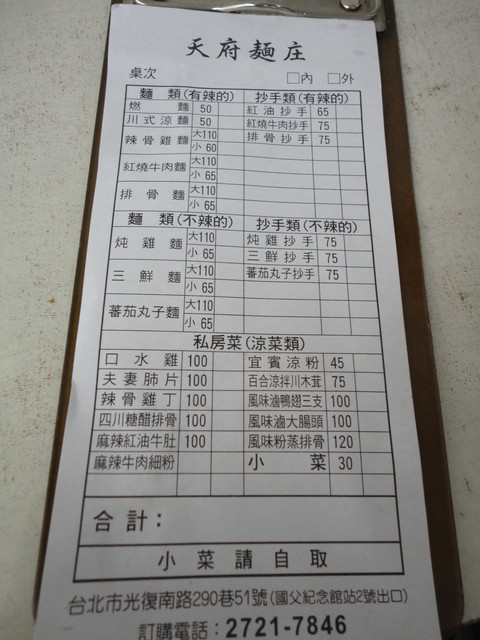 天府麵庄
桌次 □內 □外
麵 類(有辣的) 抄手類(有辣的)
燃 麵 50 紅油抄手 65
川式涼麵 50 紅燒牛肉抄手 75
辣骨雞麵 大110 排骨抄手 75
小 60
紅燒牛肉麵 大110
小 65
排骨麵 大110
小 65
麵 類(不辣的) 抄手類(不辣的)
炖雞麵 大110 炖雞抄手 75
小 65 三鮮抄手 75
三鮮麵 大110 蕃茄丸子抄手 75
小 65
蕃茄丸子麵 大110
小 65
私房菜(涼菜類)
口水雞 100 宜賓涼粉 45
夫妻肺片 100 百合涼拌川木茸 75
辣骨雞丁 100 風味滷鴨翅三支 100
四川糖醋排骨 100 風味滷大腸頭 100
麻辣紅油牛肚 100 風味粉蒸排骨 120
麻辣牛肉細粉 小菜 30
合計：
小菜請自取
台北市光復南路290巷51號(國父紀念館站2號出口)
訂購電話：2721-7846